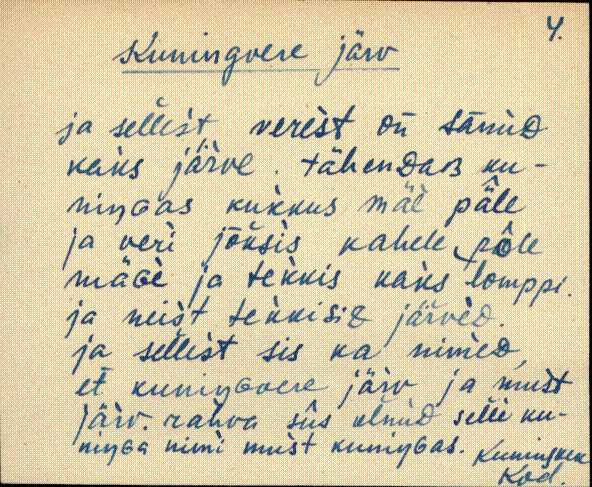 4.
Kuningvere järv
ja sellest verest on sānud
kaks järve. tähendaB ku-
niŋGas kukkus mäe pāle
ja veri jōksis kahele pōle
mäGe ja tekkis kaks lomppi.
ja neist tekkisiD järved.
ja sellest sis ka nimed,
et kuniŋGvere järv ja must
järv. rahva sūs olnud selle ku-
niŋGa nimi must kuniŋGas.
Kod.